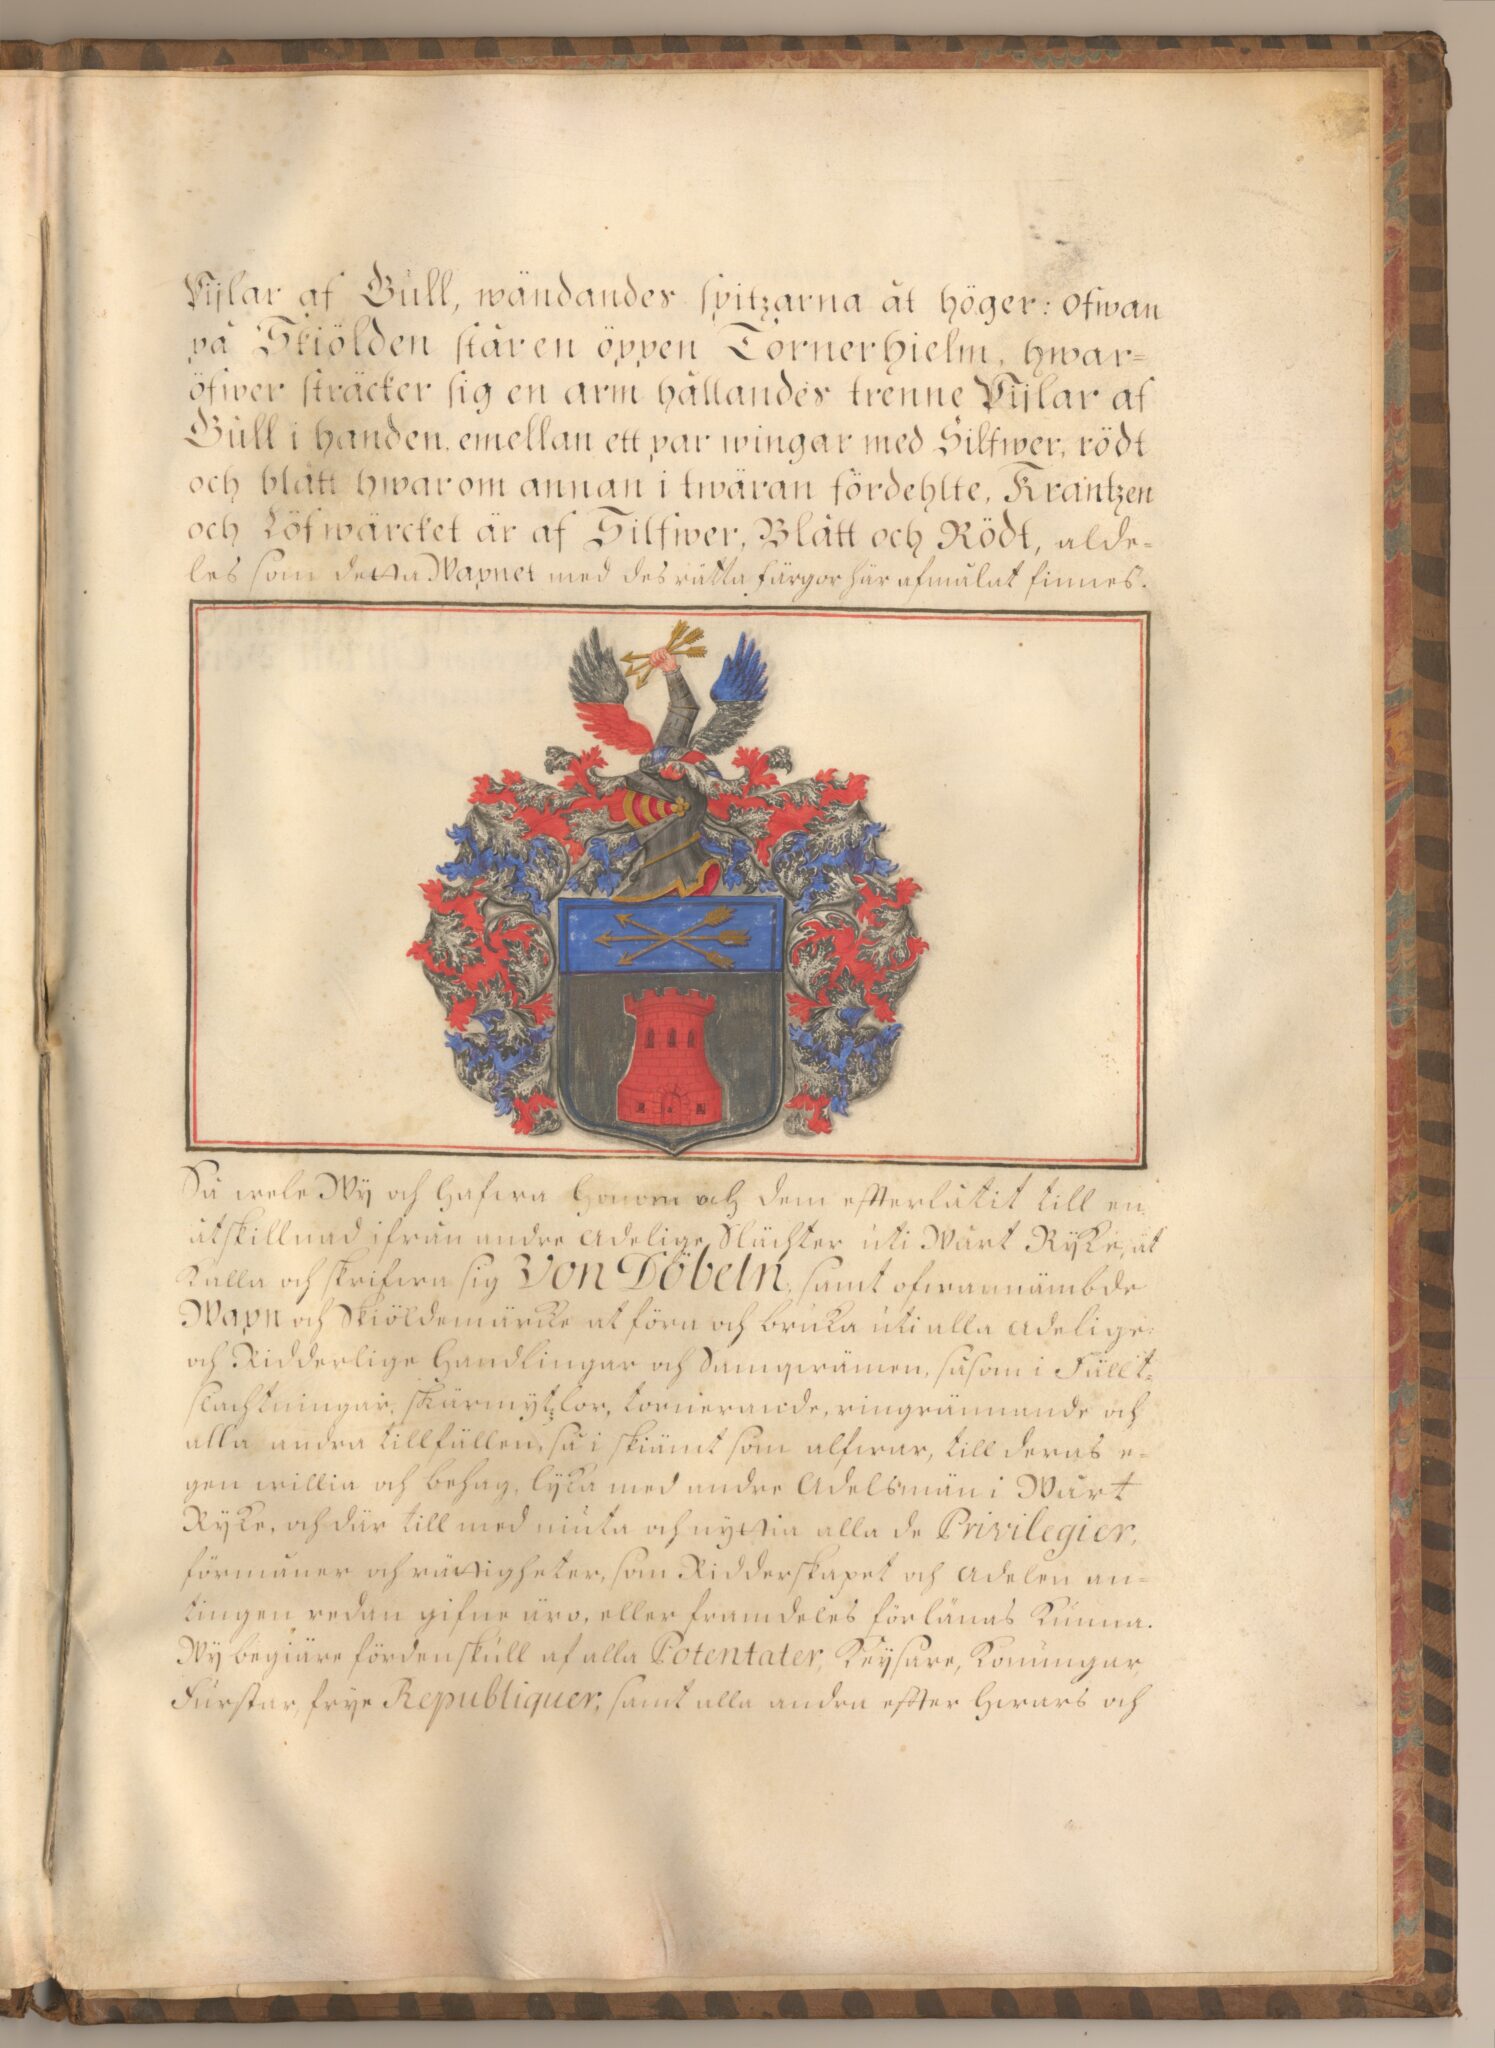 Pijlar af Gull, wändandes spitzarna åt höger: ofwan
på Skiölden står en öppen Tornerhielm, hwar=
öfwer sträcker sig en arm hållandes trenne Pijlar af
Gull i handen, emellan ett par wingar med Silfwer, rödt
och blått hwar om annan i twäran fördehlte, Krantzen
och Löfwärcket är af Silfwer, Blått och Rödt, alde-
les som detta Wapnet med des rätta färgor här afmålat finnes.
Så wele Wÿ och hafwa honom och dem efterlåtit till en
åtskillnad ifrån andre Adelige Slächter uti Wårt Ryke, at
kalla och skrifwa sig Von Döbeln, samt ofwannämbde
Wapn och Skiöldemärke at föra och bruka uti alla Adelige
och Ridderlige Handlingar och Samqwämen, såsom i Fällt-
slachtningar, skärmytzlor, tornerande, ringrännande och
alla andra tillfällen, så i skiämt som alfwar, till deras e-
gen willia och behag, lÿka med andre Adelsmän i Wårt
Ryke, och där till med niuta och nyttia alla de Privilegier,
förmåner och rättigheter, som Ridderskapet och Adelen an-
tingen redan gifne äro, eller framdeles förlänas kunna.
Wÿ begiäre fördenskull af alla Potentater, Keÿsare, Konungar,
Furstar, frye Republiquer, samt alla andra efter hwars och